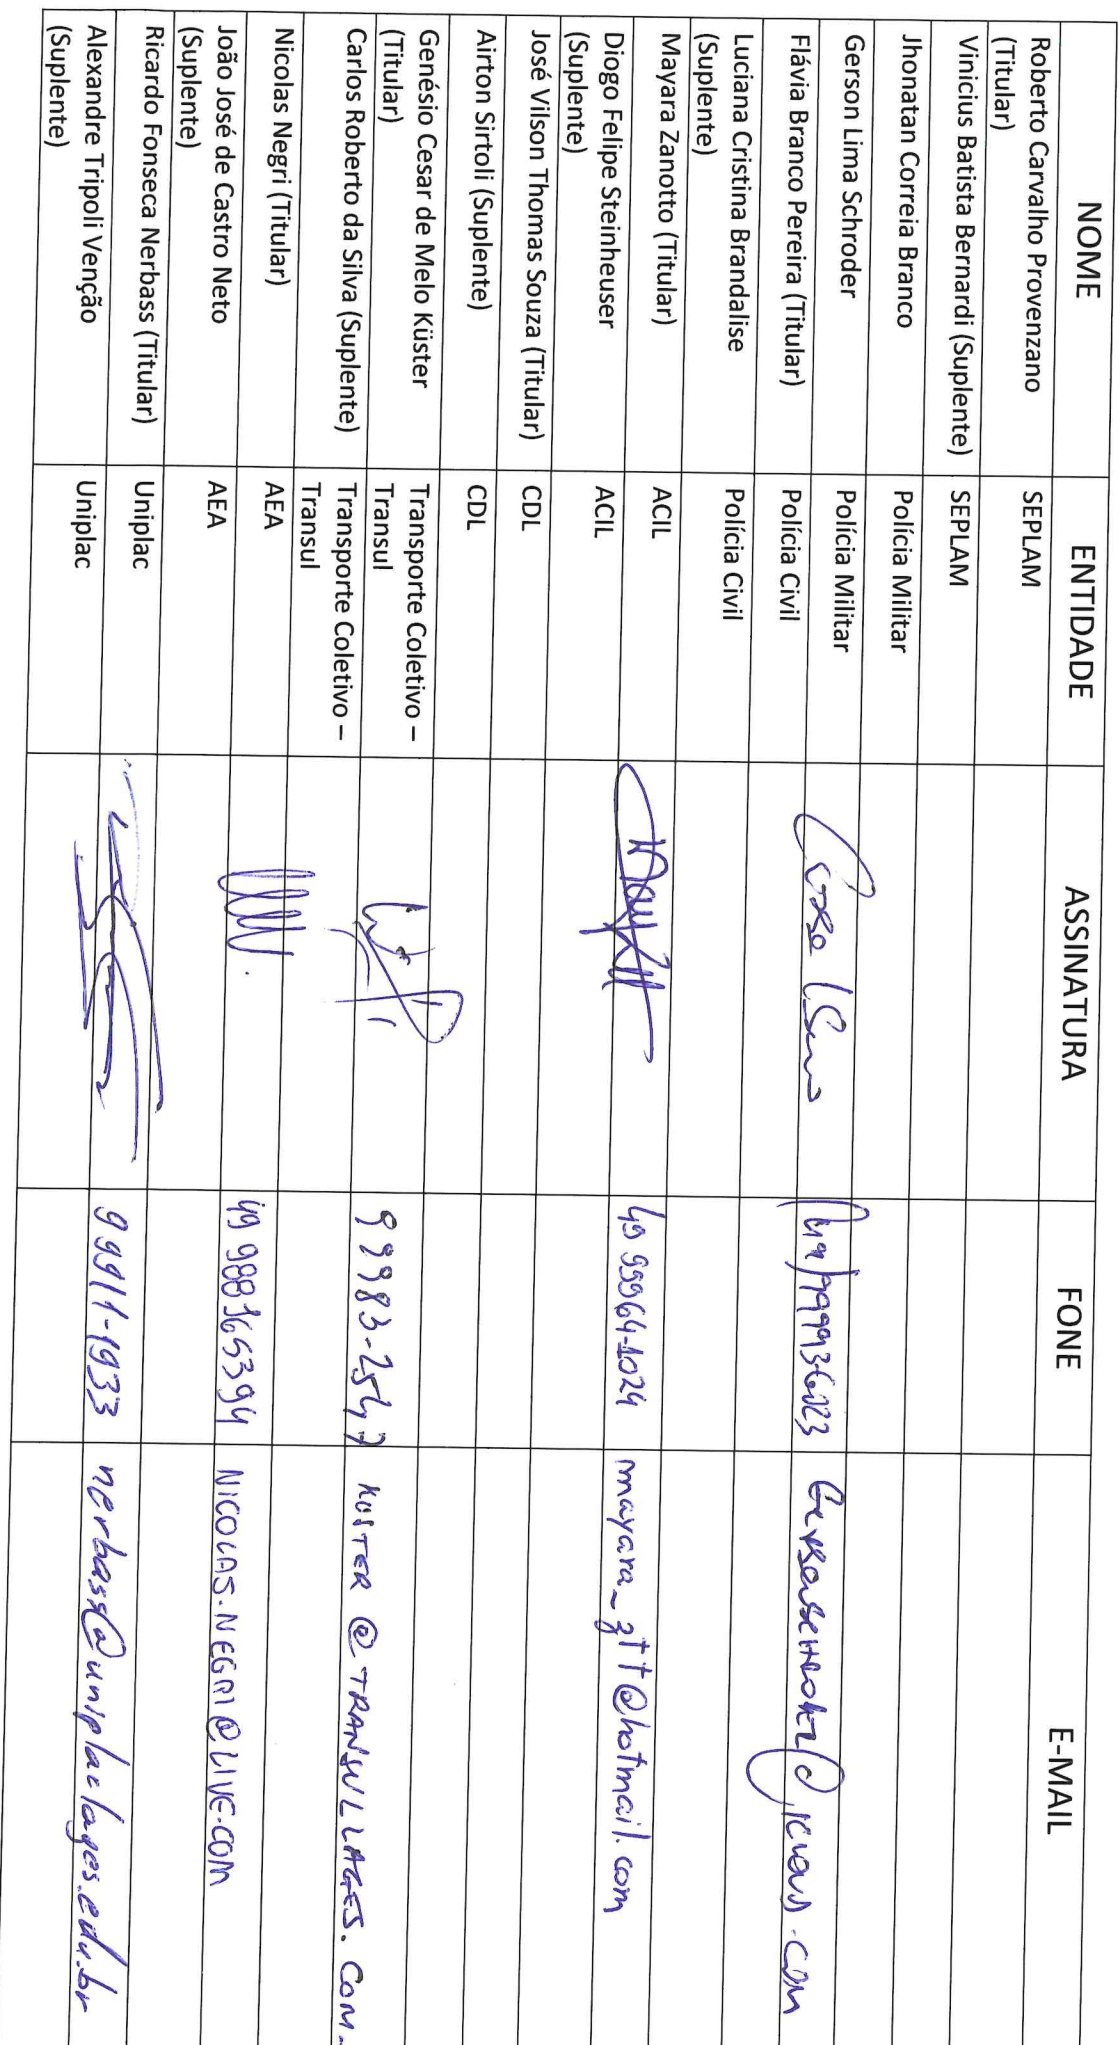 NOME ENTIDADE ASSINATURA FONE E-MAIL
Roberto Carvalho Provenzano SEPLAM
(Titular)
Vinicius Batista Bernardi (Suplente) SEPLAM
Jhonatan Correia Branco Polícia Militar
Gerson Lima Schroder Polícia Militar
Flávia Branco Pereira (Titular) Polícia Civil
Luciana Cristina Brandalise Polícia Civil
(Suplente)
Mayara Zanotto (Titular) ACIL 49 99964-1024 mayara_ztt@hotmail.com
Diogo Felipe Steinheuser ACIL
(Suplente)
José Vilson Thomas Souza (Titular) CDL
Airton Sirtoli (Suplente) CDL
Genésio Cesar de Melo Küster Transporte Coletivo –
(Titular) Transul 99983-2547 KUSTER@TRANSULLAGES.COM.
Carlos Roberto da Silva (Suplente) Transporte Coletivo –
Transul
Nicolas Negri (Titular) AEA 49 988365394 NICOLAS.NEGRI@LIVE.COM
João José de Castro Neto AEA
(Suplente)
Ricardo Fonseca Nerbass (Titular) Uniplac 99911-1933 nerbass@uniplaclages.edu.br
Alexandre Tripoli Venção Uniplac
(Suplente)